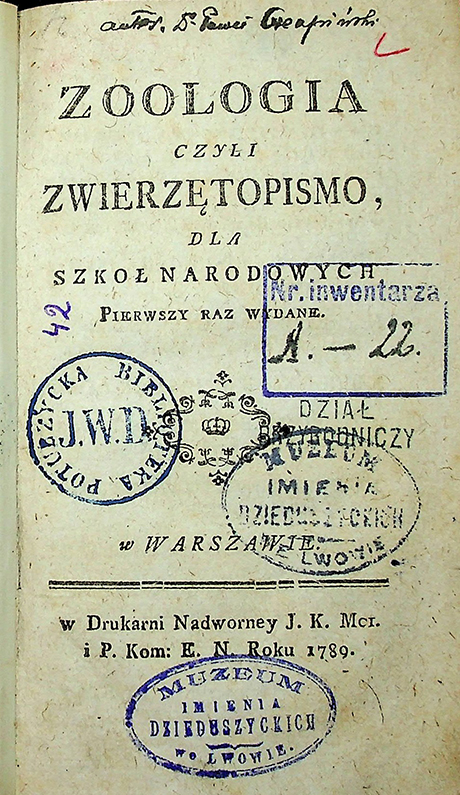 autor. Dr Paweł Czapiński
ZOOLOGIA
CZYLI
ZWIERZĘTOPISMO,
DLA
SZKOŁ NARODOWYCH,
PIERWSZY RAZ WYDANE.
42
Nr. inwentarza
A. — 22.
POTURZYCKA BIBLIOTEKA
J.W.D.
DZIAŁ
PRZYRODNICZY
MUZEUM
IMIENIA
DZIEDUSZYCKICH
WE LWOWIE
w WARSZAWIE.
w Drukarni Nadworney J. K. Mci.
i P. Kom: E. N. Roku 1789.
MUZEUM
IMIENIA
DZIEDUSZYCKICH
we LWOWIE.